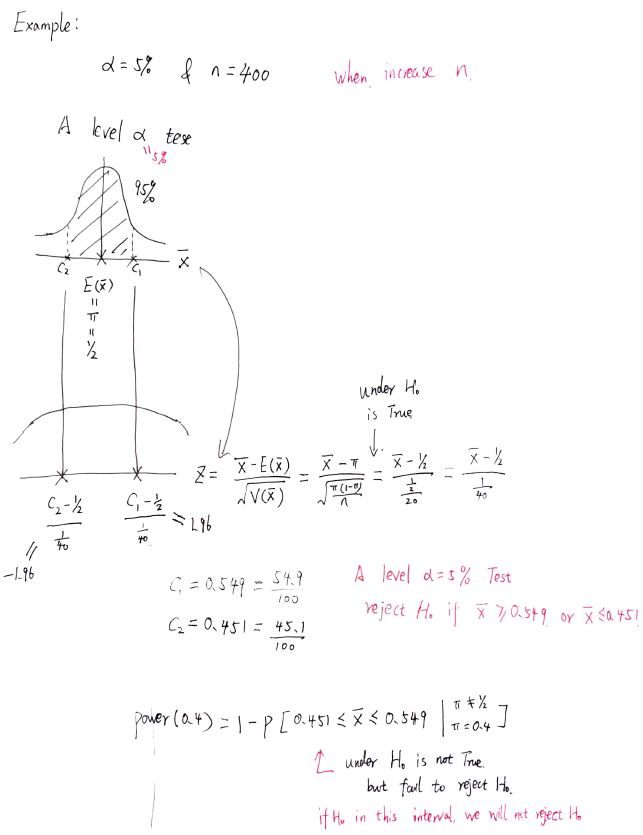 Example:
α = 5% & n = 400 when increase n.
A level α test
" 5%
95%
C₂ C₁ x̄
E(x̄)
"
π
"
½
under H₀
is True
Z = (x̄ - E(x̄))/√V(x̄) = (x̄ - π)/√(π(1-π)/n) = (x̄ - ½)/(½/20) = (x̄ - ½)/(1/40)
(C₂ - ½)/(1/40) (C₁ - ½)/(1/40) = 1.96
= -1.96
C₁ = 0.549 = 54.9/100
C₂ = 0.451 = 45.1/100
A level α = 5% Test
reject H₀ if x̄ ≥ 0.549 or x̄ ≤ 0.451
power(0.4) = 1 - P[0.451 ≤ x̄ ≤ 0.549 | π ≠ ½ π = 0.4]
under H₀ is not True.
but fail to reject H₀.
if H₀ in this interval, we will not reject H₀